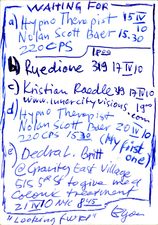 WAITING FOR
a) Hypno Therapist 15 IV 10
Nolan Scott Baer 15.30
220 CPS
b) Ruedione 319 17 IV 10
c) Kristian Roadle 319 17 IV 10
www.innercityvisions. 19°°
d) Hypno Therapist .com
Nolan Scott Baer 20 IV 10
220 CPS 15.30 (My first one)
e) Dedra L. Britt
@ Granny East Village
515 5th St to give me a
Colonic treatment
21 IV 10 NYC 8 45
"Looking fwrd"